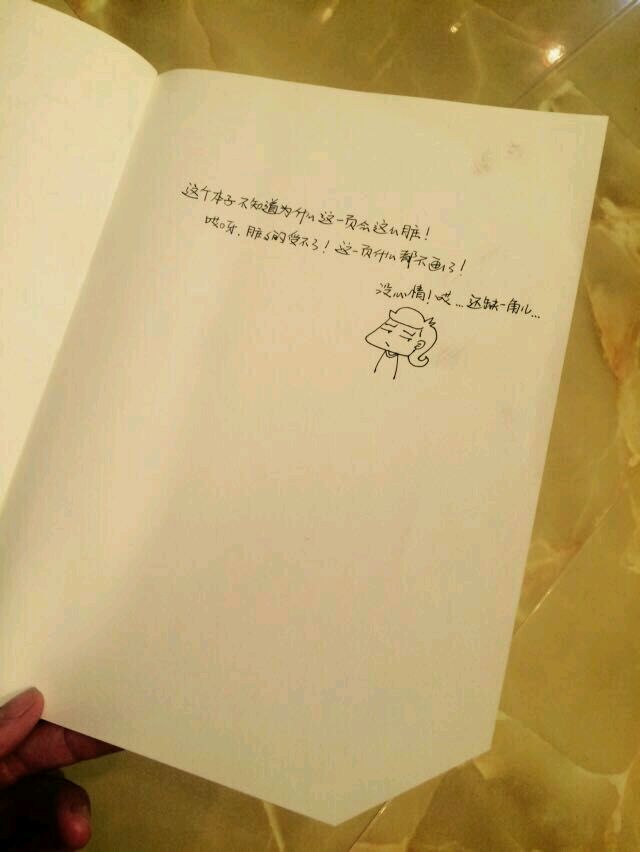 这个本子不知道为什么这一页会这么脏！
哎呀，脏的受不了！这一页什么都不画了！
没心情！哎...还缺一角儿...